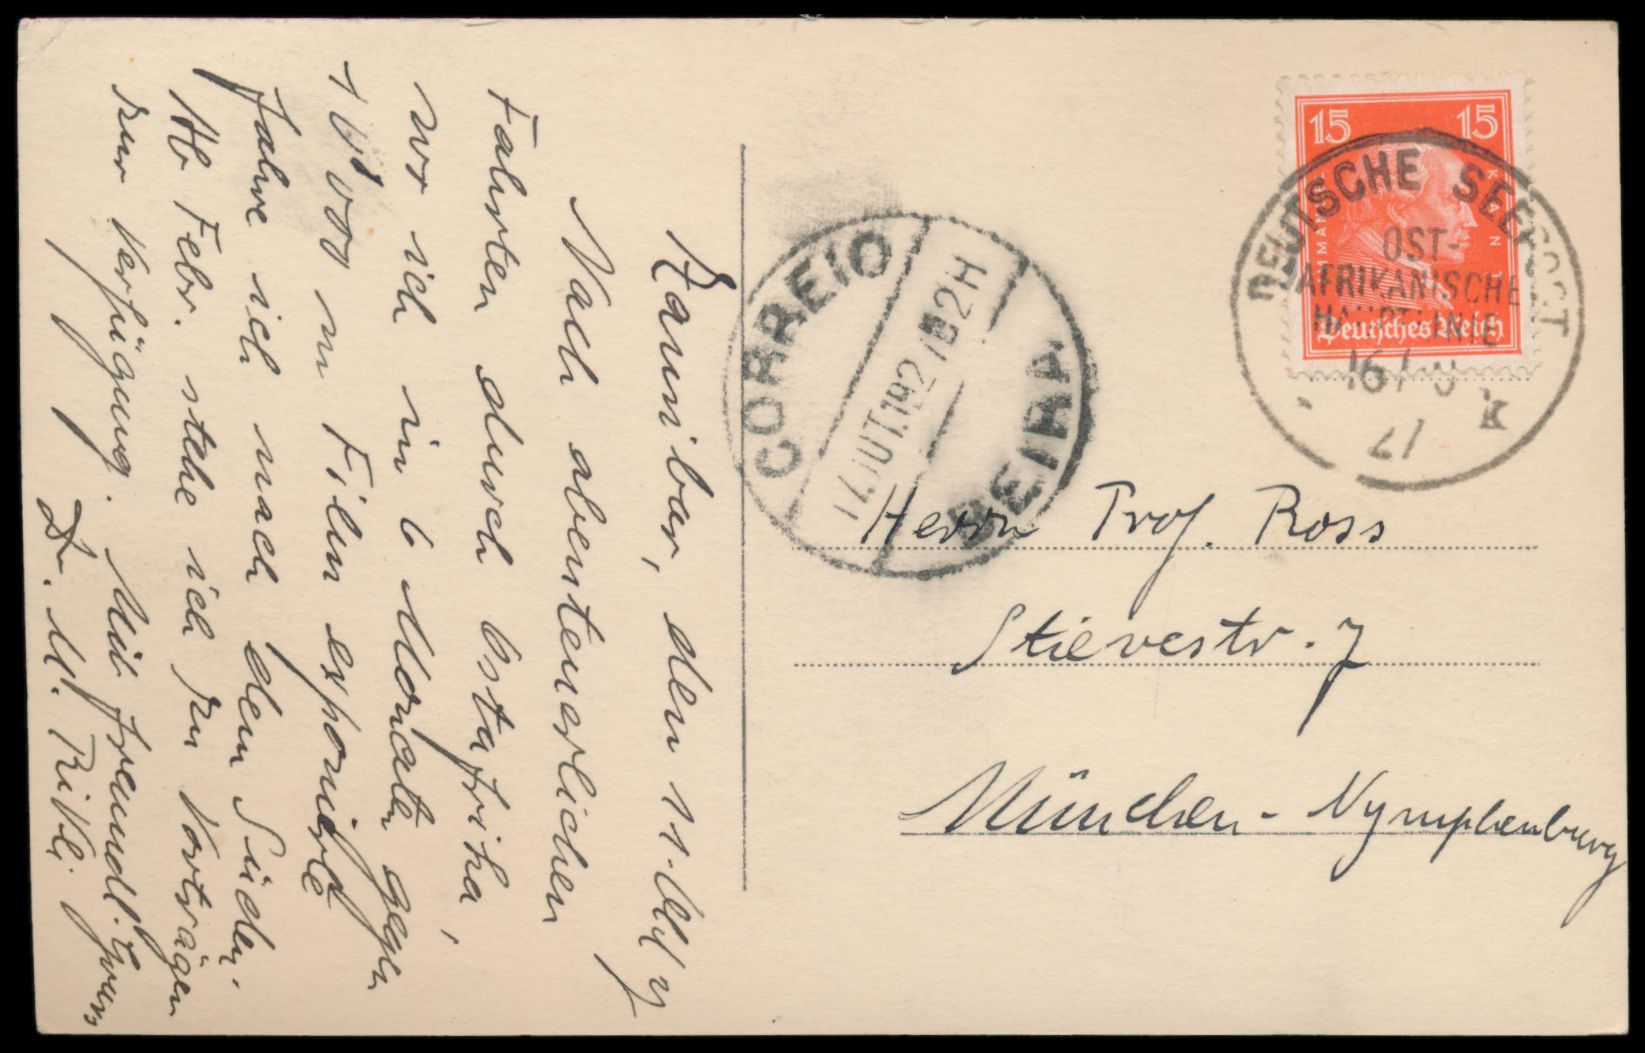 Sansibar, den 11. Okt 27
Nach abenteuerlichen
Fahrten durch Ostafrika,
wo ich in 6 Monaten gegen
10'000 m Film exponierte
fahre ich nach dem Süden.
Ab Febr. stehe ich zu Vorträgen
zur Verfügung. Mit freundl. Gruss
Dr. M. Rikli.
CORREIO
17.OUT.192
2H
BEIRA
15 15
IMMANUEL KANT
Deutsches Reich
DEUTSCHE SEEPOST
OST-
AFRIKANISCHE
HAUPTLINIE
27
k
Herrn Prof. Ross
Stievestr. 7
München-Nymphenburg